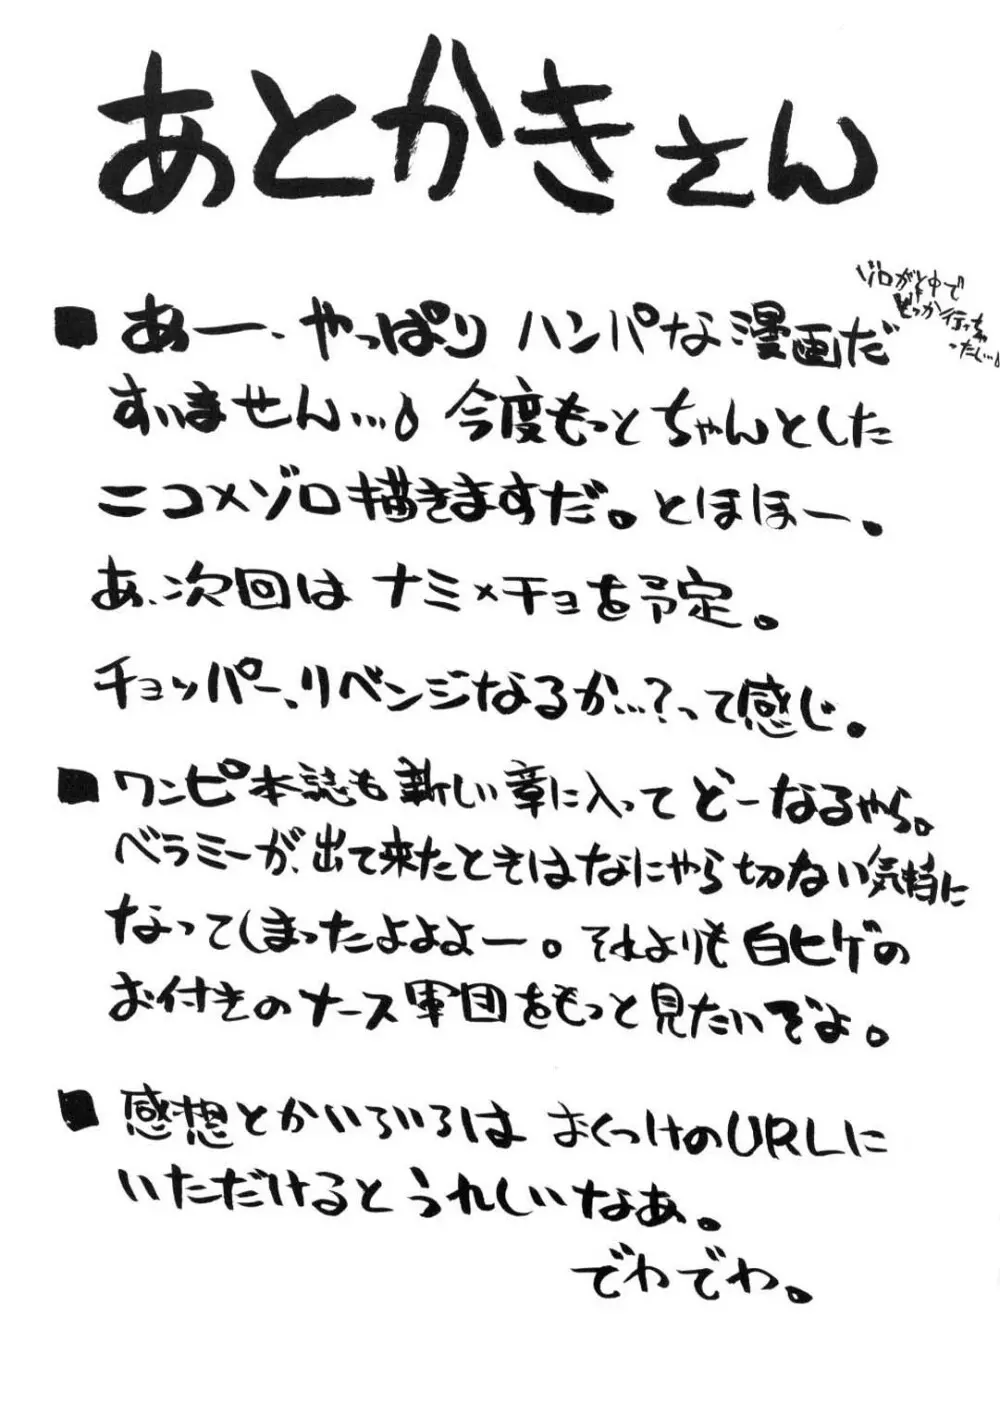 あとかきさん
■ あー、やっぱり ハンパな漫画だ
ゾロが途中で
どっか行っちゃ
ったし…
すいません…。今度もっとちゃんとした
ニコ×ゾロ描きますだ。とほほー。
あ、次回は ナミ×チョを予定。
チョッパー、リベンジなるか…?って感じ。
■ ワンピ本誌も新しい章に入ってどーなるやら。
ベラミーが、出て来たときはなにやら切ない気持に
なってしまったよよよー。それよりも白ヒゲの
お付きのナース軍団をもっと見たいぞよ。
■ 感想とかいろいろは おくつけのURLに
いただけるとうれしいなあ。
でわでわ。